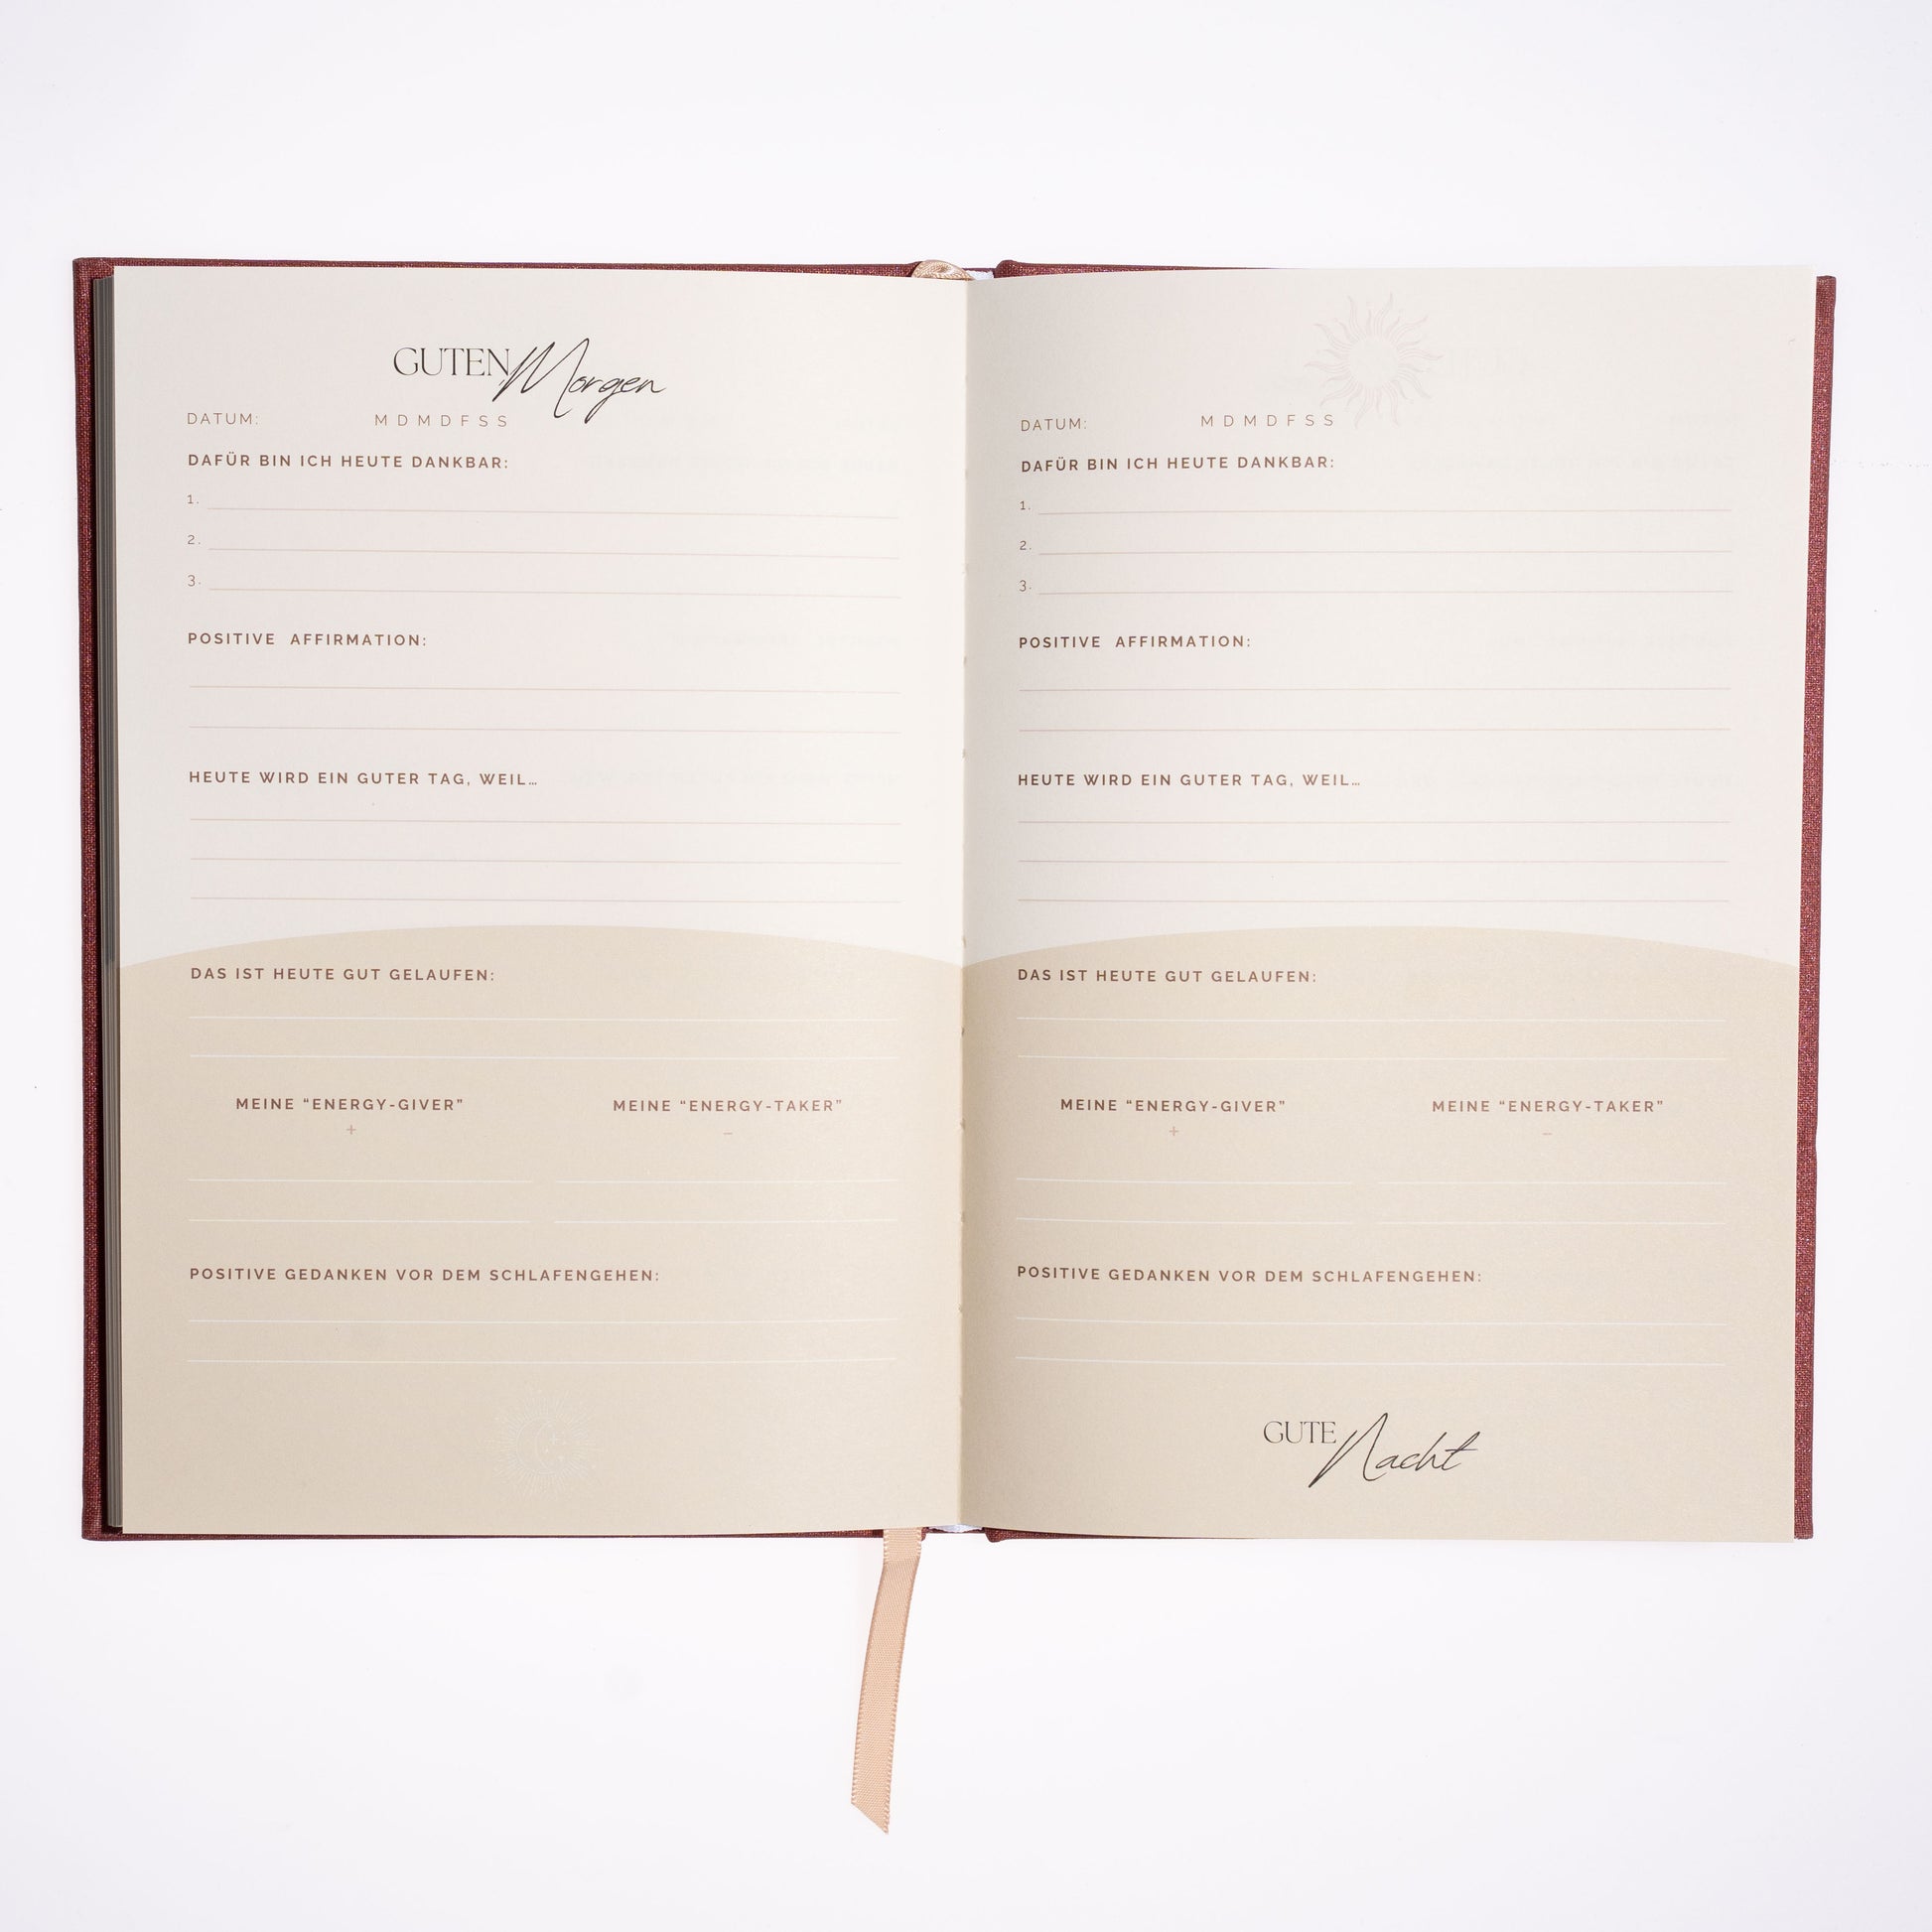 GUTEN Morgen
DATUM: M D M D F S S
DAFÜR BIN ICH HEUTE DANKBAR:
1.
2.
3.
POSITIVE AFFIRMATION:
HEUTE WIRD EIN GUTER TAG, WEIL…
DAS IST HEUTE GUT GELAUFEN:
MEINE “ENERGY-GIVER” MEINE “ENERGY-TAKER”
+ –
POSITIVE GEDANKEN VOR DEM SCHLAFENGEHEN:
DATUM: M D M D F S S
DAFÜR BIN ICH HEUTE DANKBAR:
1.
2.
3.
POSITIVE AFFIRMATION:
HEUTE WIRD EIN GUTER TAG, WEIL…
DAS IST HEUTE GUT GELAUFEN:
MEINE “ENERGY-GIVER” MEINE “ENERGY-TAKER”
+ –
POSITIVE GEDANKEN VOR DEM SCHLAFENGEHEN:
GUTE Nacht